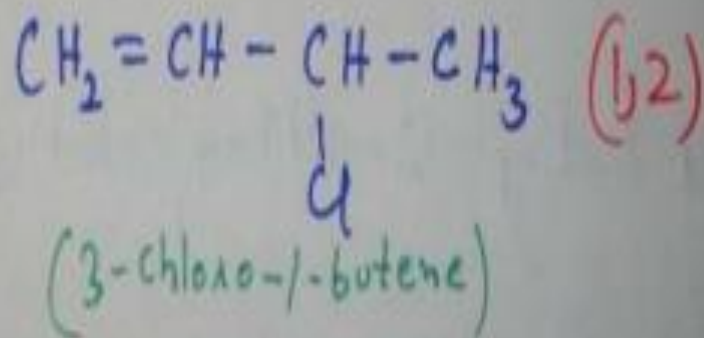 CH₂ = CH - CH - CH₃ (1,2)
|
Cl
(3-chloro-1-butene)